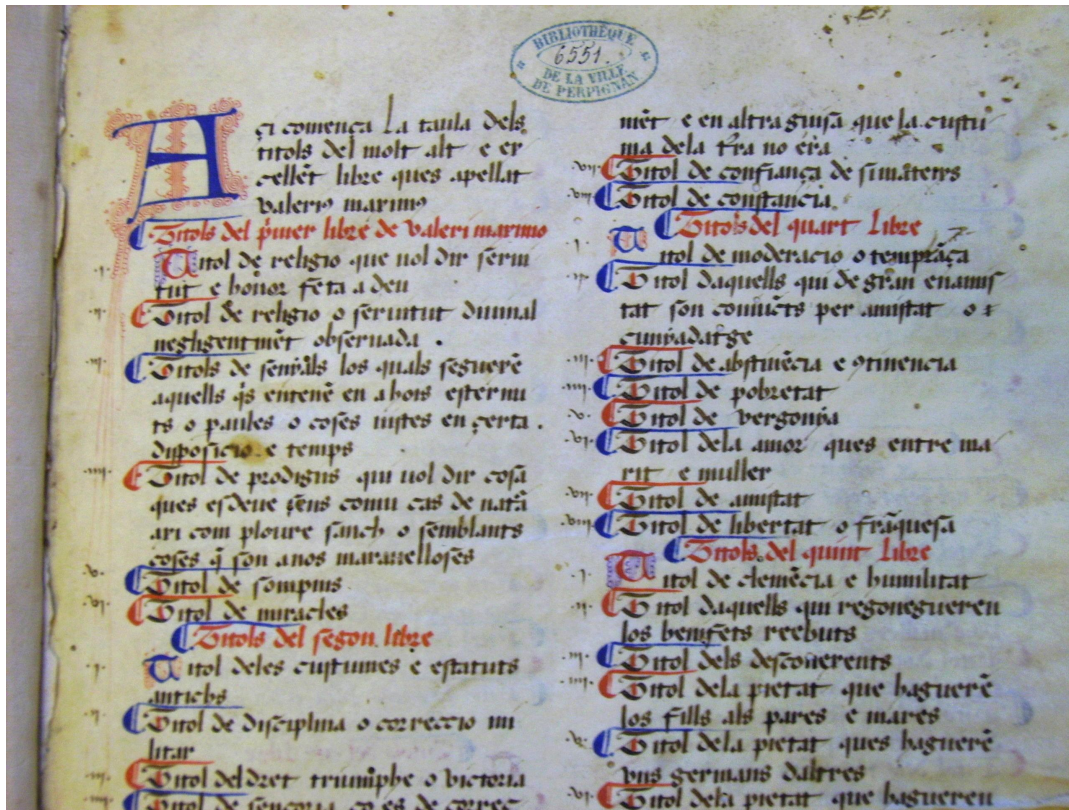 BIBLIOTHÈQUE
6551.
DE LA VILLE
DE PERPIGNAN
Açi comença la taula dels
titols del molt alt e ex
cellẽt libre ques apellat
valeriꝰ maximꝰ
Titols del p̃mer libre de valeri maximo
.i. Titol de religio que uol dir serui
tut e honor feta a deu
.ii. Titol de religio o seruitut diuinal
negligentmẽt obseruada .
.iii. Titols de senyals los quals seguerẽ
aquells
entenẽ en a bois esternu
ts o paules o coses uistes en çerta .
disposicio e temps
.iiii. Titol de prodigiis qui uol dir cosa
ques esdeue çens comu cas de natã
ari com ploure sanch o semblants
coses q̃ son a nos marauelloses
.v. Titol de sompnis
.vi. Titol de miracles
Titols del segon libre
.i. Titol deles custumes e estatuts
antichs
.ii. Titol de disciplina o correccio mi
litar
.iii. Titol del dret triumphe o victoria
Titol de sençoria ço es de correc
mẽt e en altra guisa que la custu
ma dela tr̃a no era
.vii. Titol de confiança de si mateixs
.viii. Titol de constancia
Titols del quart libre
.i. Titol de moderacio o temprãça
.ii. Titol daquells qui de gran enamis
tat son conuicts per amistat o
cunyadatge
.iii. Titol de abstinẽcia e ꝯtinencia
.iiii. Titol de pobretat
.v. Titol de vergonya
.vi. Titol dela amor ques entre ma
rit e muller
.vii. Titol de amistat
.viii. Titol de libertat o frãquesa
Titols del quint libre
.i. Titol de clemẽcia e humilitat
.ii. Titol daquells qui regonegueren
los benifets reebuts
.iii. Titol dels desconexents
.iiii. Titol dela pietat que haguerẽ
los fills als pares e mares
.v. Titol dela pietat ques haguerẽ
vns germans daltres
.vi. Titol dela pietat que hagueren